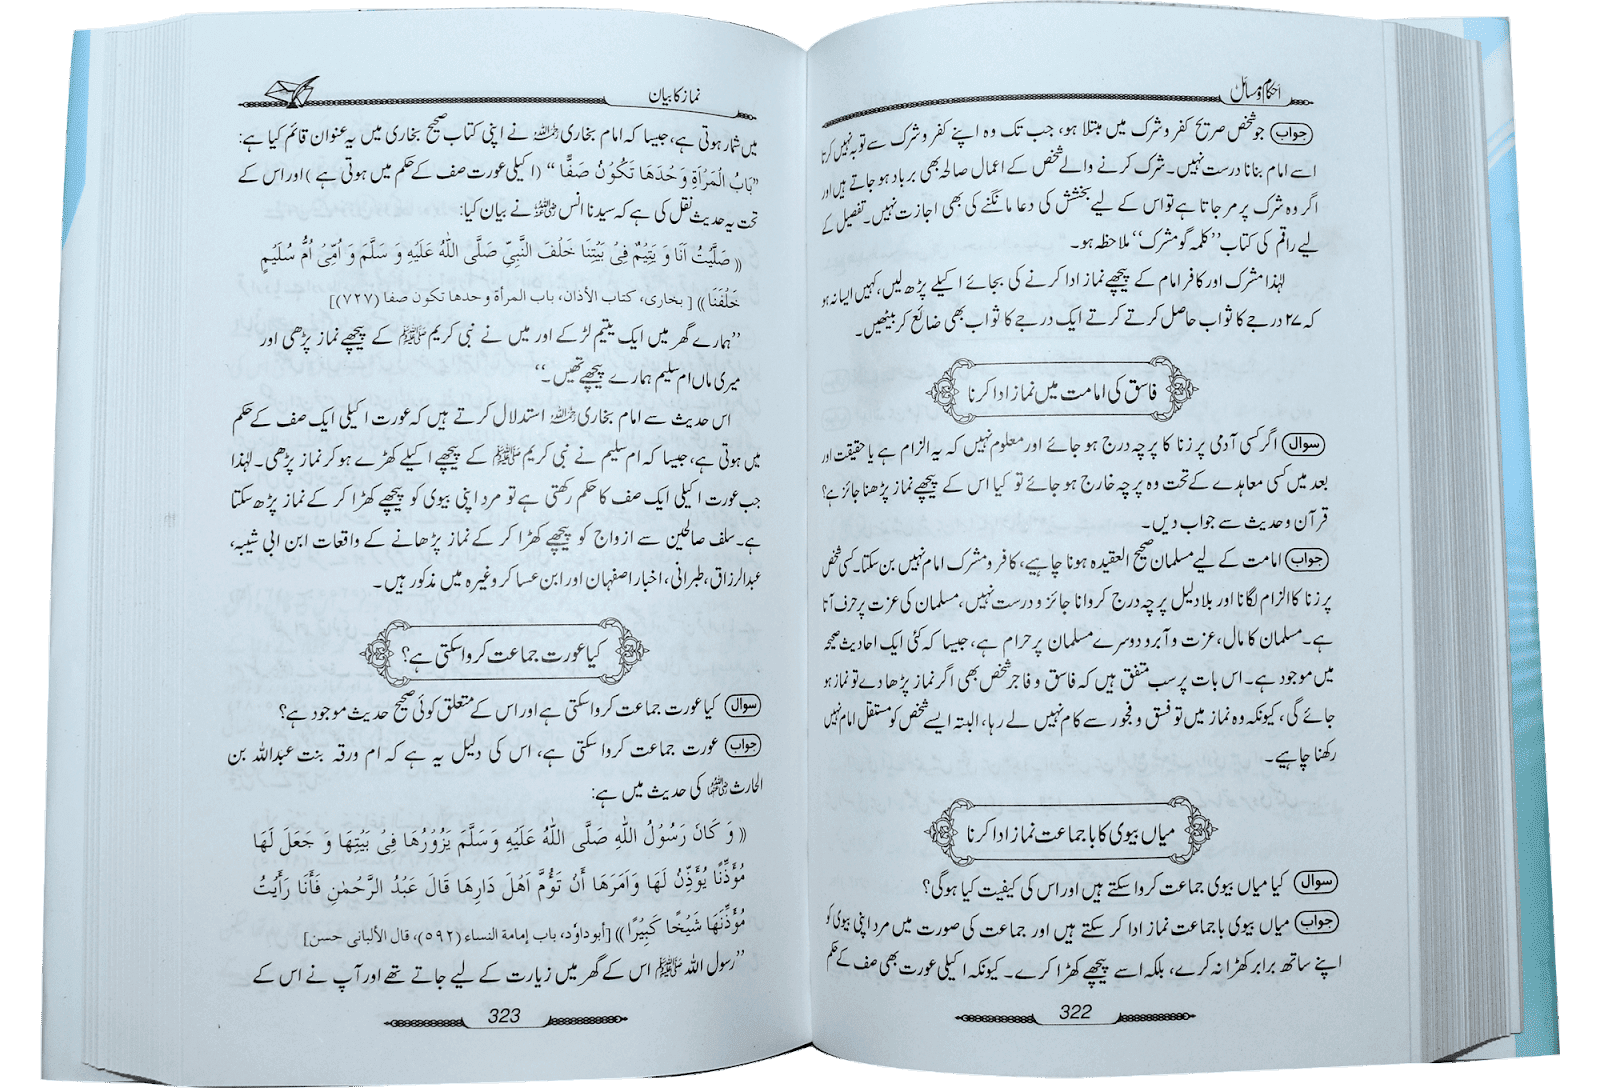 احکام و مسائل
جواب جو شخص صریح کفر و شرک میں مبتلا ہو، جب تک وہ اپنے کفر و شرک سے توبہ نہیں کرتا
اسے امام بنانا درست نہیں۔ شرک کرنے والے شخص کے اعمال صالحہ بھی برباد ہو جاتے ہیں اور
اگر وہ شرک پر مر جاتا ہے تو اس کے لیے بخشش کی دعا مانگنے کی بھی اجازت نہیں۔ تفصیل کے
لیے راقم کی کتاب ”کلمہ گو مشرک“ ملاحظہ ہو۔
لہٰذا مشرک اور کافر امام کے پیچھے نماز ادا کرنے کی بجائے اکیلے پڑھ لیں، کہیں ایسا نہ ہو
کہ ۲۷ درجے کا ثواب حاصل کرتے کرتے ایک درجے کا ثواب بھی ضائع کر بیٹھیں۔
فاسق کی امامت میں نماز ادا کرنا
سوال اگر کسی آدمی پر زنا کا پرچہ درج ہو جائے اور معلوم نہیں کہ یہ الزام ہے یا حقیقت اور
بعد میں کسی معاہدے کے تحت وہ پرچہ خارج ہو جائے تو کیا اس کے پیچھے نماز پڑھنا جائز ہے؟
قرآن و حدیث سے جواب دیں۔
جواب امامت کے لیے مسلمان صحیح العقیدہ ہونا چاہیے، کافر و مشرک امام نہیں بن سکتا۔ کسی شخص
پر زنا کا الزام لگانا اور بلا دلیل پرچہ درج کروانا جائز و درست نہیں، مسلمان کی عزت پر حرف آتا
ہے۔ مسلمان کا مال، عزت و آبرو دوسرے مسلمان پر حرام ہے، جیسا کہ کئی ایک احادیث صحیحہ
میں موجود ہے۔ اس بات پر سب متفق ہیں کہ فاسق و فاجر شخص بھی اگر نماز پڑھا دے تو نماز ہو
جائے گی، کیونکہ وہ نماز میں تو فسق و فجور سے کام نہیں لے رہا، البتہ ایسے شخص کو مستقل امام نہیں
رکھنا چاہیے۔
میاں بیوی کا با جماعت نماز ادا کرنا
سوال کیا میاں بیوی جماعت کروا سکتے ہیں اور اس کی کیفیت کیا ہوگی؟
جواب میاں بیوی با جماعت نماز ادا کر سکتے ہیں اور جماعت کی صورت میں مرد اپنی بیوی کو
اپنے ساتھ برابر کھڑا نہ کرے، بلکہ اسے پیچھے کھڑا کرے۔ کیونکہ اکیلی عورت بھی صف کے حکم
322
نماز کا بیان
میں شمار ہوتی ہے، جیسا کہ امام بخاری رحمہ اللہ نے اپنی کتاب صحیح بخاری میں یہ عنوان قائم کیا ہے:
”بَابُ الْمَرْأَةِ وَحْدَهَا تَكُوْنُ صَفًّا“ (اکیلی عورت صف کے حکم میں ہوتی ہے) اور اس کے
تحت یہ حدیث نقل کی ہے کہ سیدنا انس رضی اللہ عنہ نے بیان کیا:
(( صَلَّيْتُ اَنَا وَ يَتِيْمٌ فِيْ بَيْتِنَا خَلْفَ النَّبِيِّ صَلَّى اللّٰهُ عَلَيْهِ وَ سَلَّمَ وَ اُمِّيْ اُمُّ سُلَيْمٍ
خَلْفَنَا )) [ بخارى، كتاب الأذان، باب المرأة وحدها تكون صفا (٧٢٧)]
”ہمارے گھر میں ایک یتیم لڑکے اور میں نے نبی کریم ﷺ کے پیچھے نماز پڑھی اور
میری ماں ام سلیم ہمارے پیچھے تھیں۔“
اس حدیث سے امام بخاری رحمہ اللہ استدلال کرتے ہیں کہ عورت اکیلی ایک صف کے حکم
میں ہوتی ہے، جیسا کہ ام سلیم نے نبی کریم ﷺ کے پیچھے اکیلے کھڑے ہو کر نماز پڑھی۔ لہٰذا
جب عورت اکیلی ایک صف کا حکم رکھتی ہے تو مرد اپنی بیوی کو پیچھے کھڑا کر کے نماز پڑھ سکتا
ہے۔ سلف صالحین سے ازواج کو پیچھے کھڑا کر کے نماز پڑھانے کے واقعات ابن ابی شیبہ،
عبدالرزاق، طبرانی، اخبار اصفہان اور ابن عساکر وغیرہ میں مذکور ہیں۔
کیا عورت جماعت کروا سکتی ہے؟
سوال کیا عورت جماعت کروا سکتی ہے اور اس کے متعلق کوئی صحیح حدیث موجود ہے؟
جواب عورت جماعت کروا سکتی ہے، اس کی دلیل یہ ہے کہ ام ورقہ بنت عبداللہ بن
الحارث رضی اللہ عنہا کی حدیث میں ہے:
(( وَ كَانَ رَسُوْلُ اللّٰهِ صَلَّى اللّٰهُ عَلَيْهِ وَسَلَّمَ يَزُوْرُهَا فِيْ بَيْتِهَا وَ جَعَلَ لَهَا
مُؤَذِّنًا يُؤَذِّنُ لَهَا وَاَمَرَهَا أَنْ تَؤُمَّ اَهْلَ دَارِهَا قَالَ عَبْدُ الرَّحْمٰنِ فَأَنَا رَأَيْتُ
مُؤَذِّنَهَا شَيْخًا كَبِيْرًا )) [أبوداوٗد، باب إمامة النساء (٥٩٢)، قال الألبانى حسن]
”رسول اللہ ﷺ اس کے گھر میں زیارت کے لیے جاتے تھے اور آپ نے اس کے
323